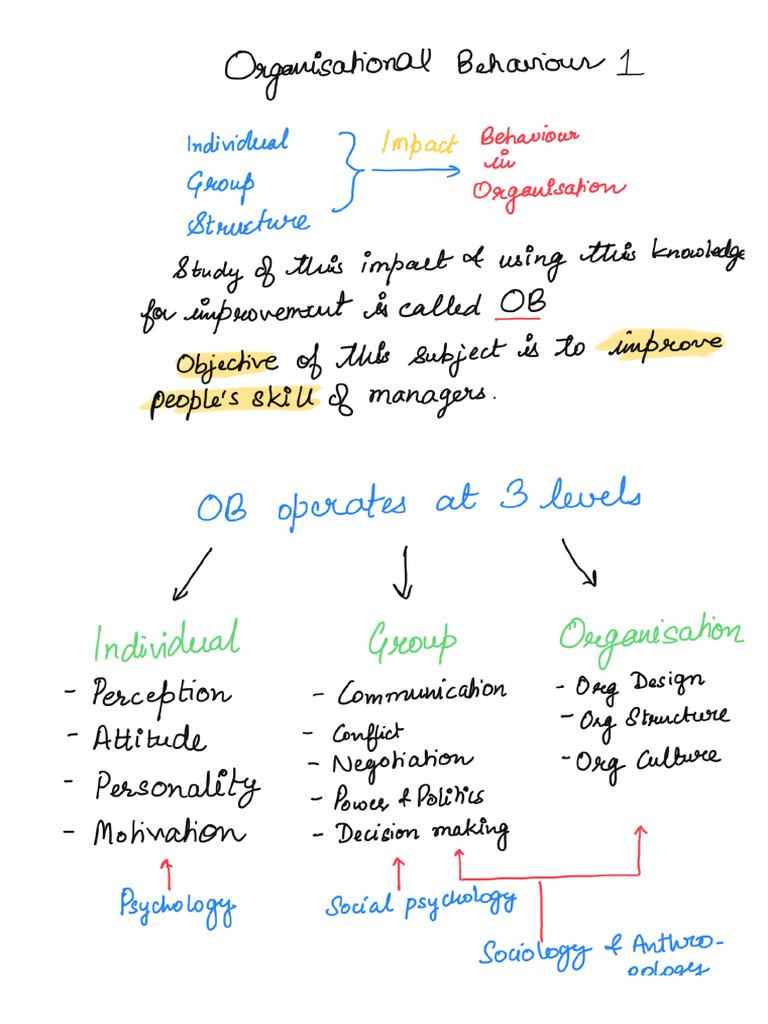 Organisational Behaviour 1
Individual
Group
Structure
Impact
Behaviour
in
Organisation
Study of this impact & using this knowledge
for improvement is called OB
Objective of this subject is to improve
people's skill of managers.
OB operates at 3 levels
Individual
- Perception
- Attitude
- Personality
- Motivation
Psychology
Group
- Communication
- Conflict
- Negotiation
- Power & Politics
- Decision making
Social psychology
Organisation
- Org Design
- Org Structure
- Org Culture
Sociology & Anthro-